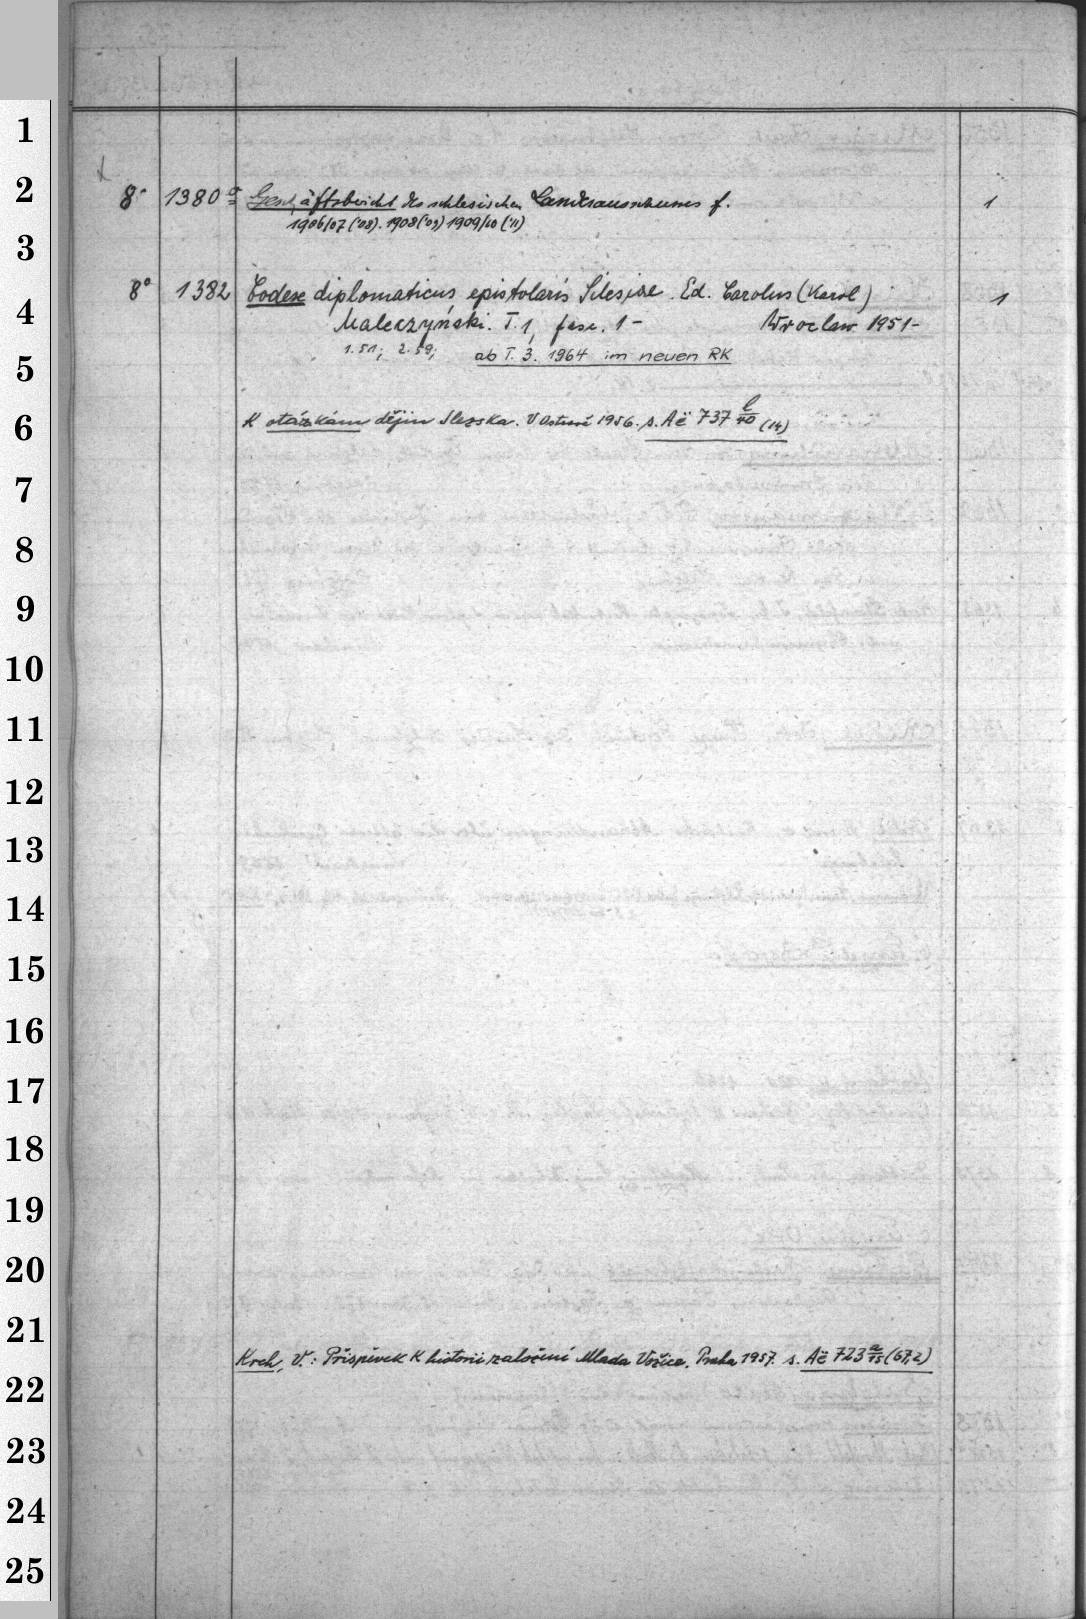 1
2
3
4
5
6
7
8
9
10
11
12
13
14
15
16
17
18
19
20
21
22
23
24
25
8° 1380 a Geschäftsbericht des schlesischen Landesausschusses f. 1
1906/07 ('08). 1908 ('09) 1909/10 ('11)
8° 1382 Codex diplomaticus epistolaris Silesiae. Ed. Carolus (Karol) 1
Maleczyński. T. 1, fasc. 1- Wroclaw 1951-
1.51; 2.59; ab T. 3. 1964 im neuen RK
K otázkám dějin Slezska. V Ostravě 1956. s. Aë 737 l/40 (14)
Krch, V.: Příspěvek K historii založení Mlada Vožice. Praha 1957. s. Aë 723 a/15 (67,2)